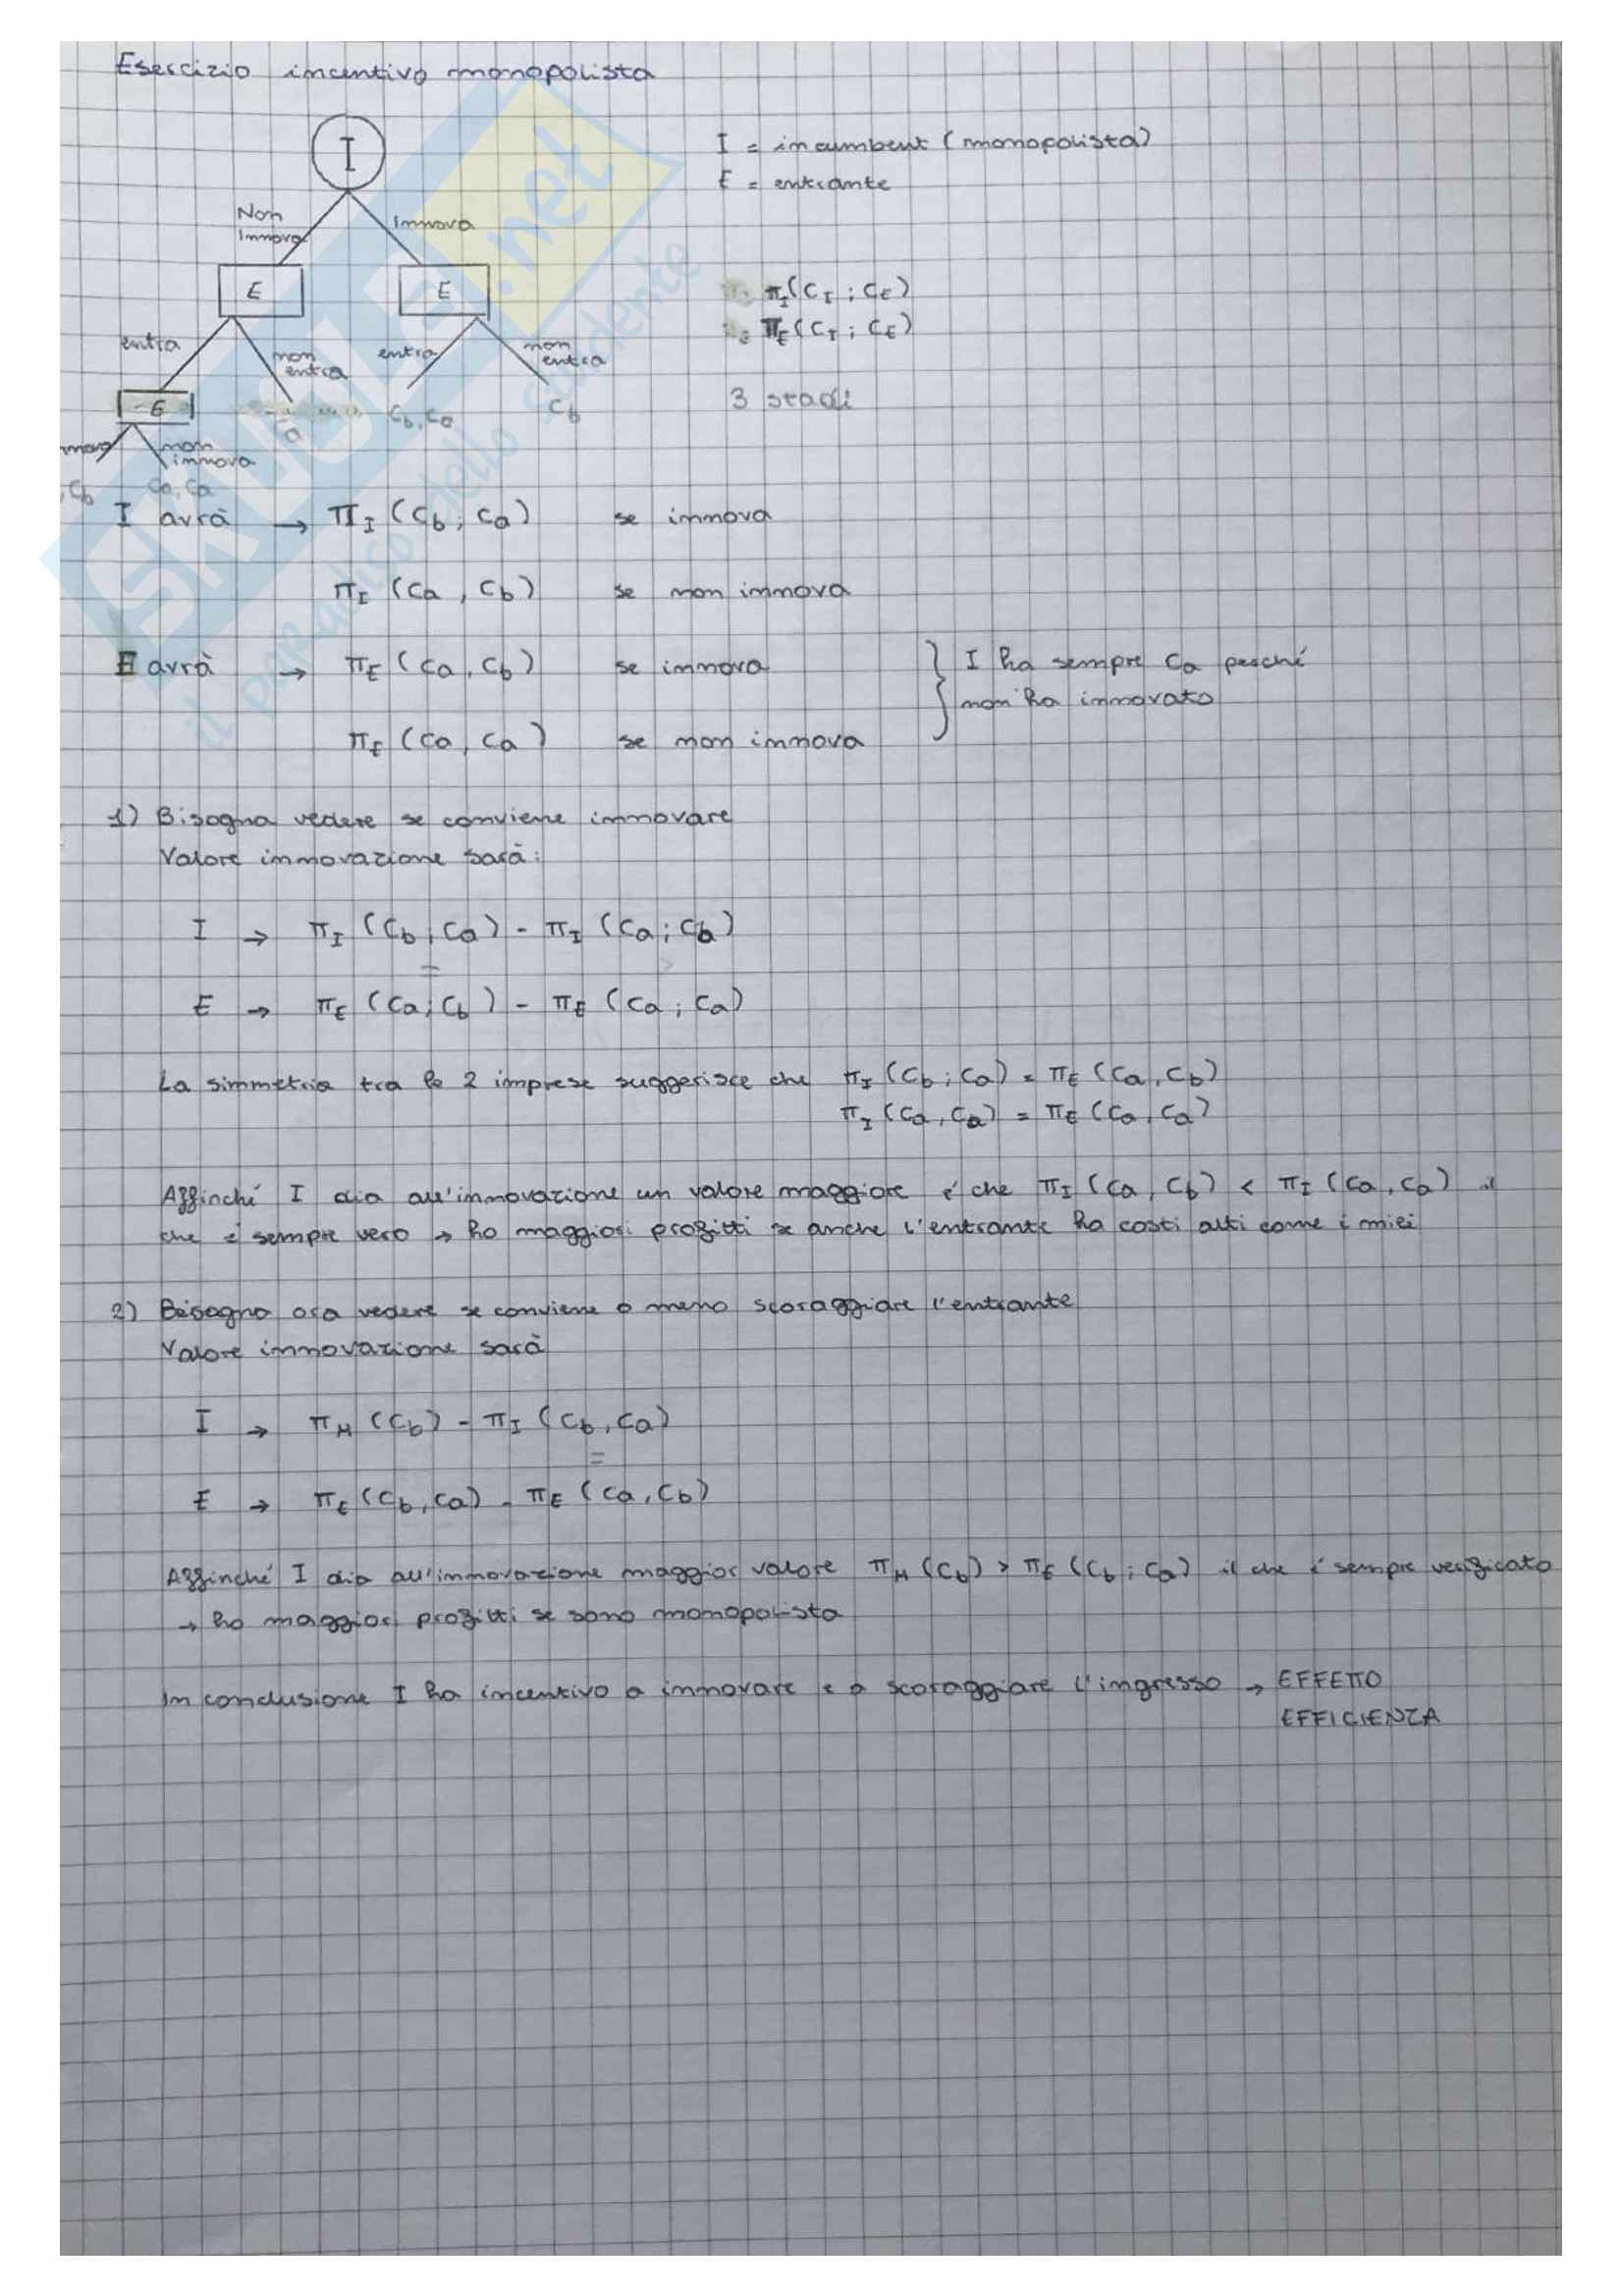 Esercizio incentivo monopolista
I
I = incumbent (monopolista)
E = entrante
Non
Innova
Innova
E
E
π_I (C_I ; C_E)
π_E (C_I ; C_E)
entra
non
entra
entra
non
entra
3 stadi
E
a
C_b, C_a
C_b
non
innova
, C_b
C_a, C_a
I avrà → π_I (C_b ; C_a) se innova
π_I (C_a , C_b) se non innova
E avrà → π_E (C_a , C_b) se innova } I ha sempre C_a perché
non ha innovato
π_E (C_a , C_a) se non innova
1) Bisogna vedere se conviene innovare
Valore innovazione sarà:
I → π_I (C_b ; C_a) - π_I (C_a ; C_b)
=
E → π_E (C_a ; C_b) - π_E (C_a ; C_a)
La simmetria tra le 2 imprese suggerisce che π_I (C_b ; C_a) = π_E (C_a , C_b)
π_I (C_a , C_a) = π_E (C_a , C_a)
Affinché I dia all'innovazione un valore maggiore è che π_I (C_a , C_b) < π_I (C_a , C_a) il
che è sempre vero → ho maggiori profitti se anche l'entrante ha costi alti come i miei
2) Bisogna ora vedere se conviene o meno scoraggiare l'entrante
Valore innovazione sarà
I → π_M (C_b) - π_I (C_b , C_a)
=
E → π_E (C_b , C_a) - π_E (C_a , C_b)
Affinché I dia all'innovazione maggior valore π_M (C_b) > π_E (C_b ; C_a) il che è sempre verificato
→ ho maggiori profitti se sono monopolista
In conclusione I ha incentivo a innovare e a scoraggiare l'ingresso → EFFETTO
EFFICIENZA
SKUOLA.net
il paradiso dello studente